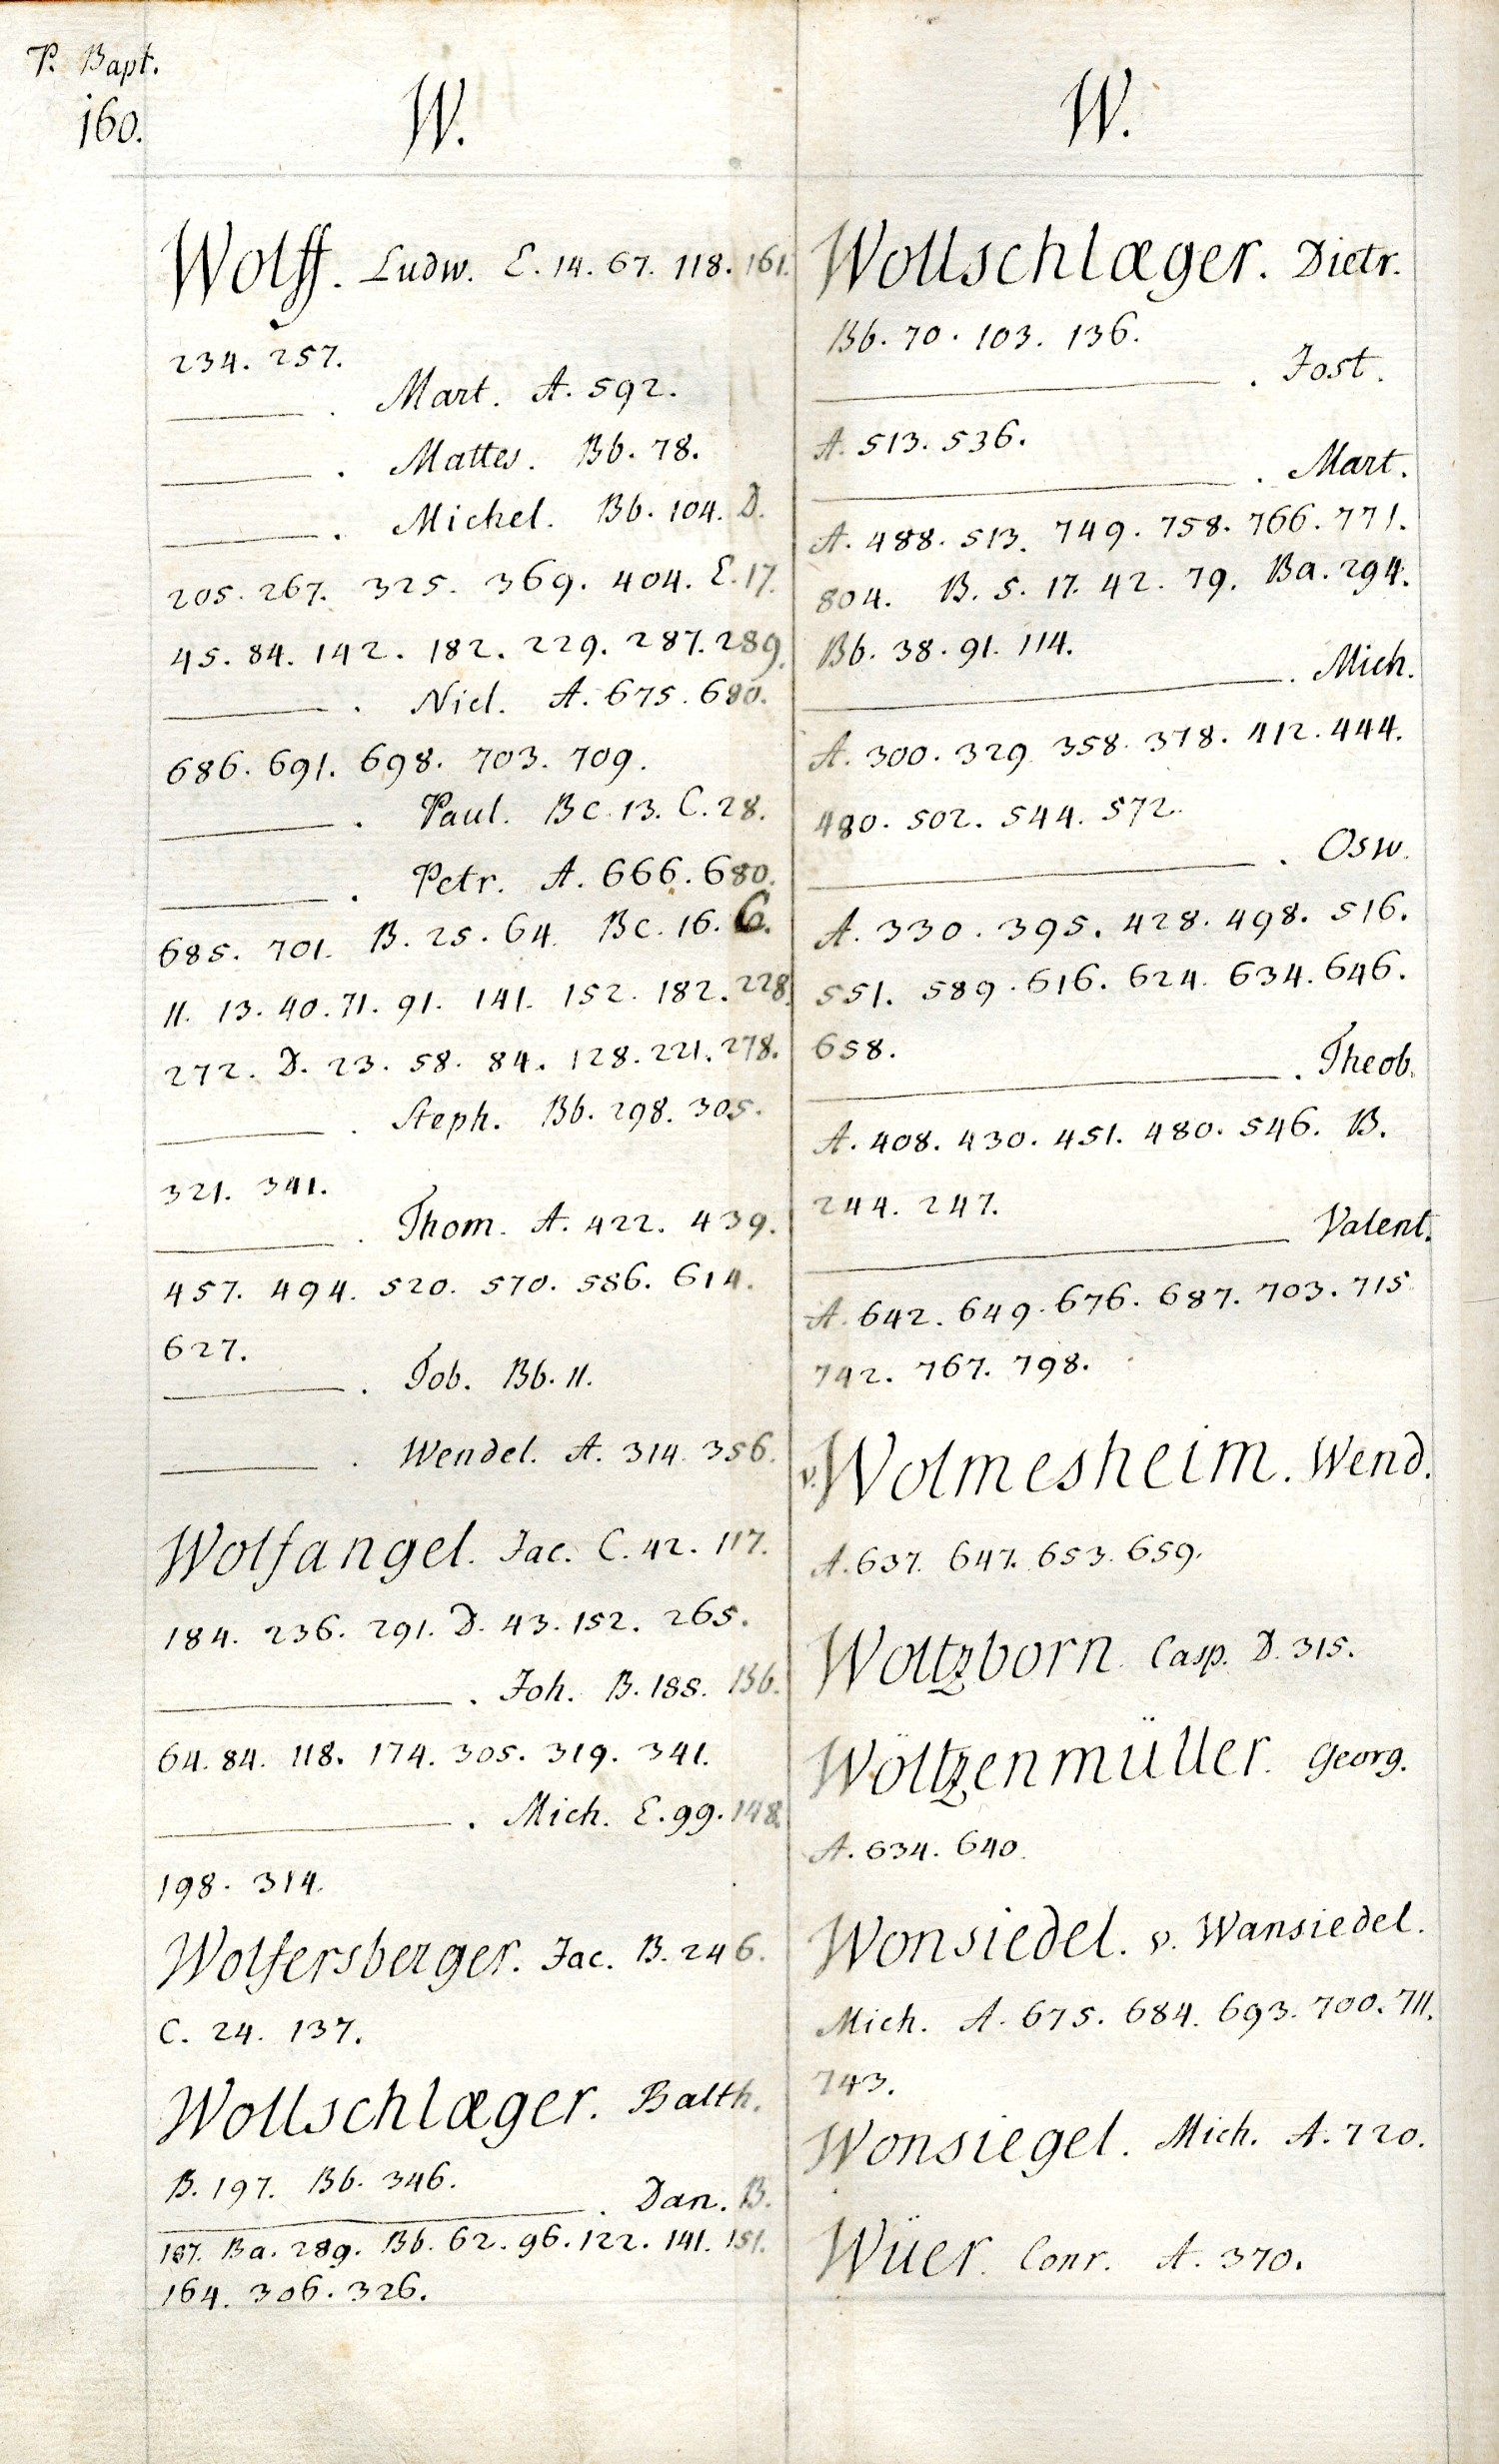 P. Bapt.
160.
W.
Wolff. Ludw. E. 14. 67. 118. 161.
234. 257.
——— . Mart. A. 592.
——— . Mattes. Bb. 78.
——— . Michel. Bb. 104. D.
205. 267. 325. 369. 404. E. 17.
45. 84. 142. 182. 229. 287. 289.
——— . Nicl. A. 675. 680.
686. 691. 698. 703. 709.
——— . Paul. Bc. 13. C. 28.
——— . Petr. A. 666. 680.
685. 701. B. 25. 64. Bc. 16. C.
11. 13. 40. 71. 91. 141. 152. 182. 228.
272. D. 23. 58. 84. 128. 221. 278.
——— . Steph. Bb. 298. 305.
321. 341.
——— . Thom. A. 422. 439.
457. 494. 520. 570. 586. 614.
627.
——— . Tob. Bb. 11.
——— . Wendel. A. 314. 356.
Wolfangel. Jac. C. 42. 117.
184. 236. 291. D. 43. 152. 265.
——— . Joh. B. 188. Bb.
64. 84. 118. 174. 305. 319. 341.
——— . Mich. E. 99. 148.
198. 314.
Wolfersberger. Jac. B. 246.
C. 24. 137.
Wollschlæger. Balth.
B. 197. Bb. 346.
——— . Dan. B.
187. Ba. 289. Bb. 62. 96. 122. 141. 151.
164. 306. 326.
W.
Wollschlæger. Dietr.
Bb. 70. 103. 136.
——— . Jost.
A. 513. 536.
——— . Mart.
A. 488. 513. 749. 758. 766. 771.
804. B. 5. 17. 42. 79. Ba. 294.
Bb. 38. 91. 114.
——— . Mich.
A. 300. 329. 358. 378. 412. 444.
480. 502. 544. 572.
——— . Osw.
A. 330. 395. 428. 498. 516.
551. 589. 616. 624. 634. 646.
658.
——— . Theob.
A. 408. 430. 451. 480. 546. B.
244. 247.
——— Valent.
A. 642. 649. 676. 687. 703. 715
742. 767. 798.
v. Wolmesheim. Wend.
A. 637. 647. 653. 659.
Woltzborn. Casp. D. 315.
Wöltzenmüller. Georg.
A. 634. 640.
Wonsiedel. v. Wansiedel.
Mich. A. 675. 684. 693. 700. 711.
743.
Wonsiegel. Mich. A. 720.
Wüer. Conr. A. 370.